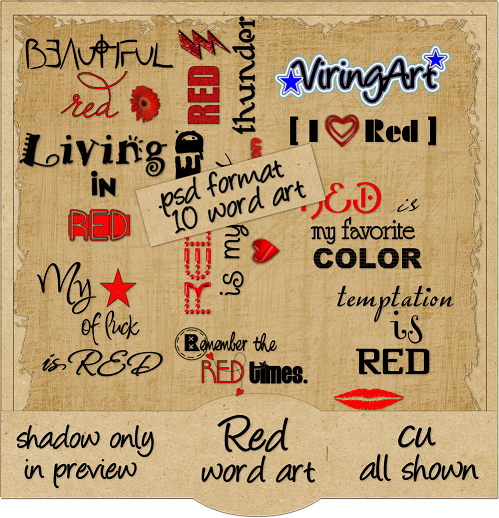 BEAUTIFUL
red
Living
in
RED
My
of luck
is RED
RED
thunder
RED
is my
.psd format
10 word art
Remember the
RED times.
ViringArt
[ I Red ]
RED is
my favorite
COLOR
temptation
is
RED
shadow only
in preview
Red
word art
CU
all shown